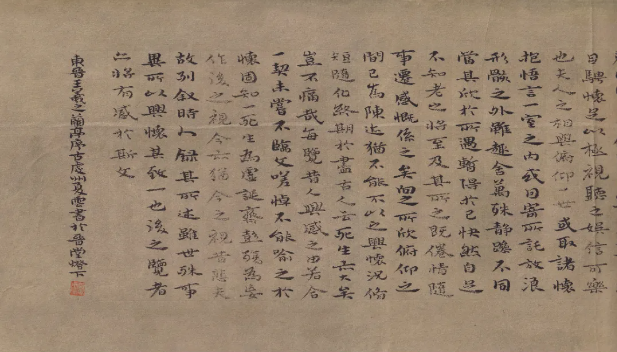 目騁懷足以極視聽之娛信可樂
也夫人之相與俯仰一世或取諸懷
抱悟言一室之內或因寄所託放浪
形骸之外雖趣舍萬殊靜躁不同
當其欣於所遇暫得於己快然自足
不知老之將至及其所之既倦情隨
事遷感慨係之矣向之所欣俯仰之
間已為陳迹猶不能不以之興懷況脩
短隨化終期於盡古人云死生亦大矣
豈不痛哉每覽昔人興感之由若合
一契未嘗不臨文嗟悼不能喻之於
懷固知一死生為虛誕齊彭殤為妄
作後之視今亦猶今之視昔悲夫
故列敘時人錄其所述雖世殊事
異所以興懷其致一也後之覽者
亦將有感於斯文
東晉王羲之蘭亭序古處州夏雲書於晉堂燈下